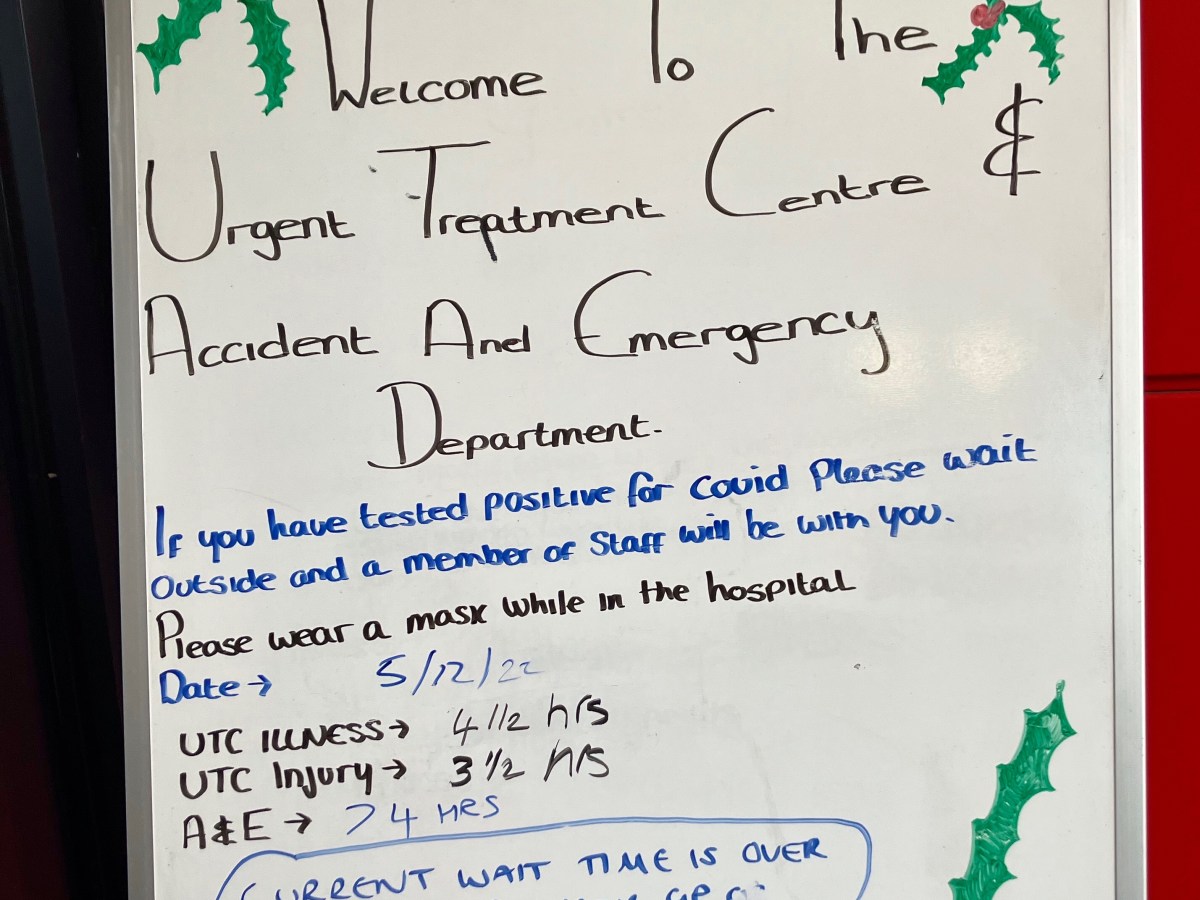 Welcome To The
Urgent Treatment Centre &
Accident And Emergency
Department.
If you have tested positive for covid Please wait
outside and a member of staff will be with you.
Please wear a mask while in the hospital
Date → 5/12/22
UTC ILLNESS → 4 1/2 hrs
UTC Injury → 3 1/2 hrs
A&E → >4 HRS
CURRENT WAIT TIME IS OVER